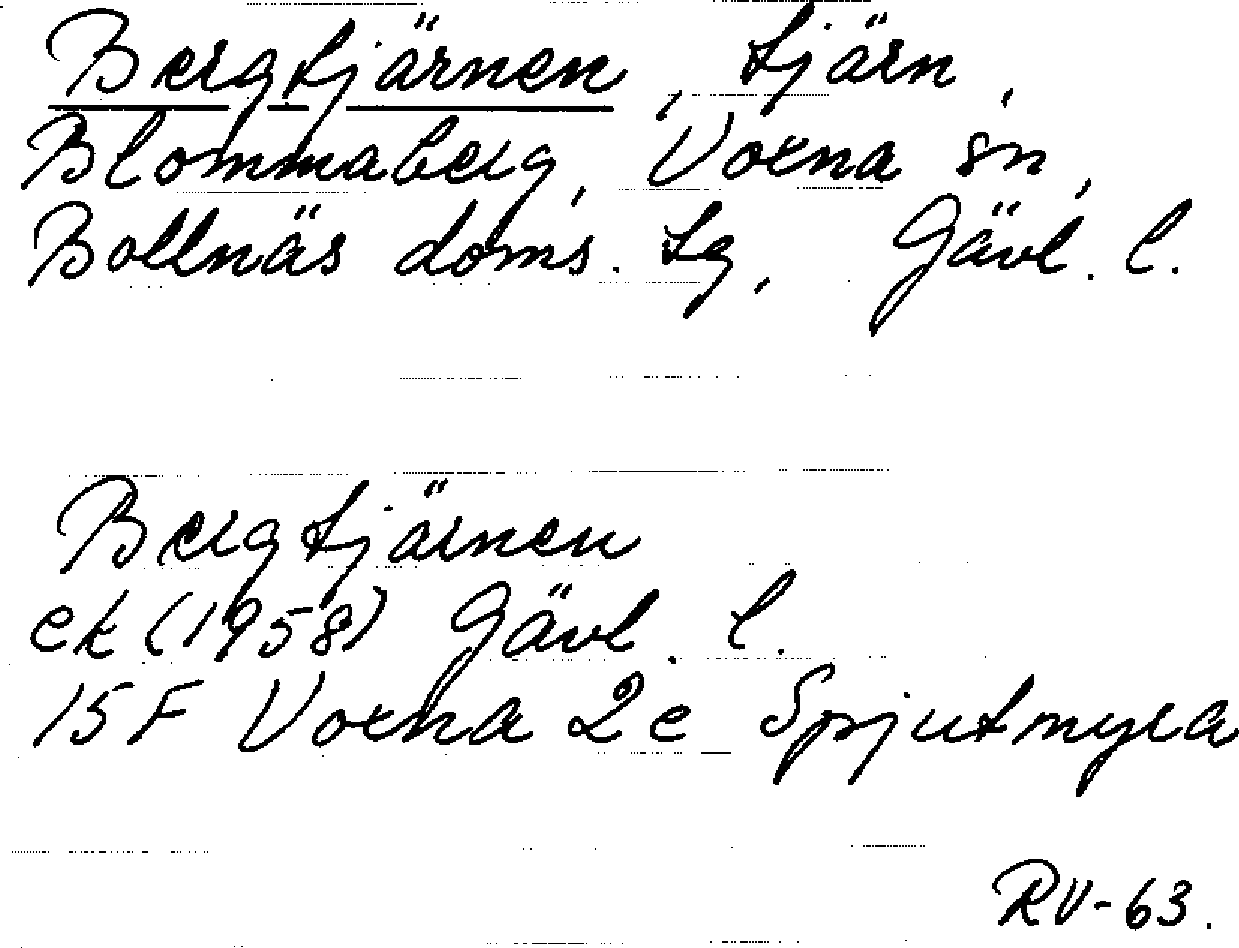 Bergtjärnen, tjärn,
Blommaberg, Voxna sn,
Bollnäs doms. tg, Gävl. l.
Bergtjärnen
ek (1958) Gävl. l.
15F Voxna 2e Spjutmyra
RV-63.